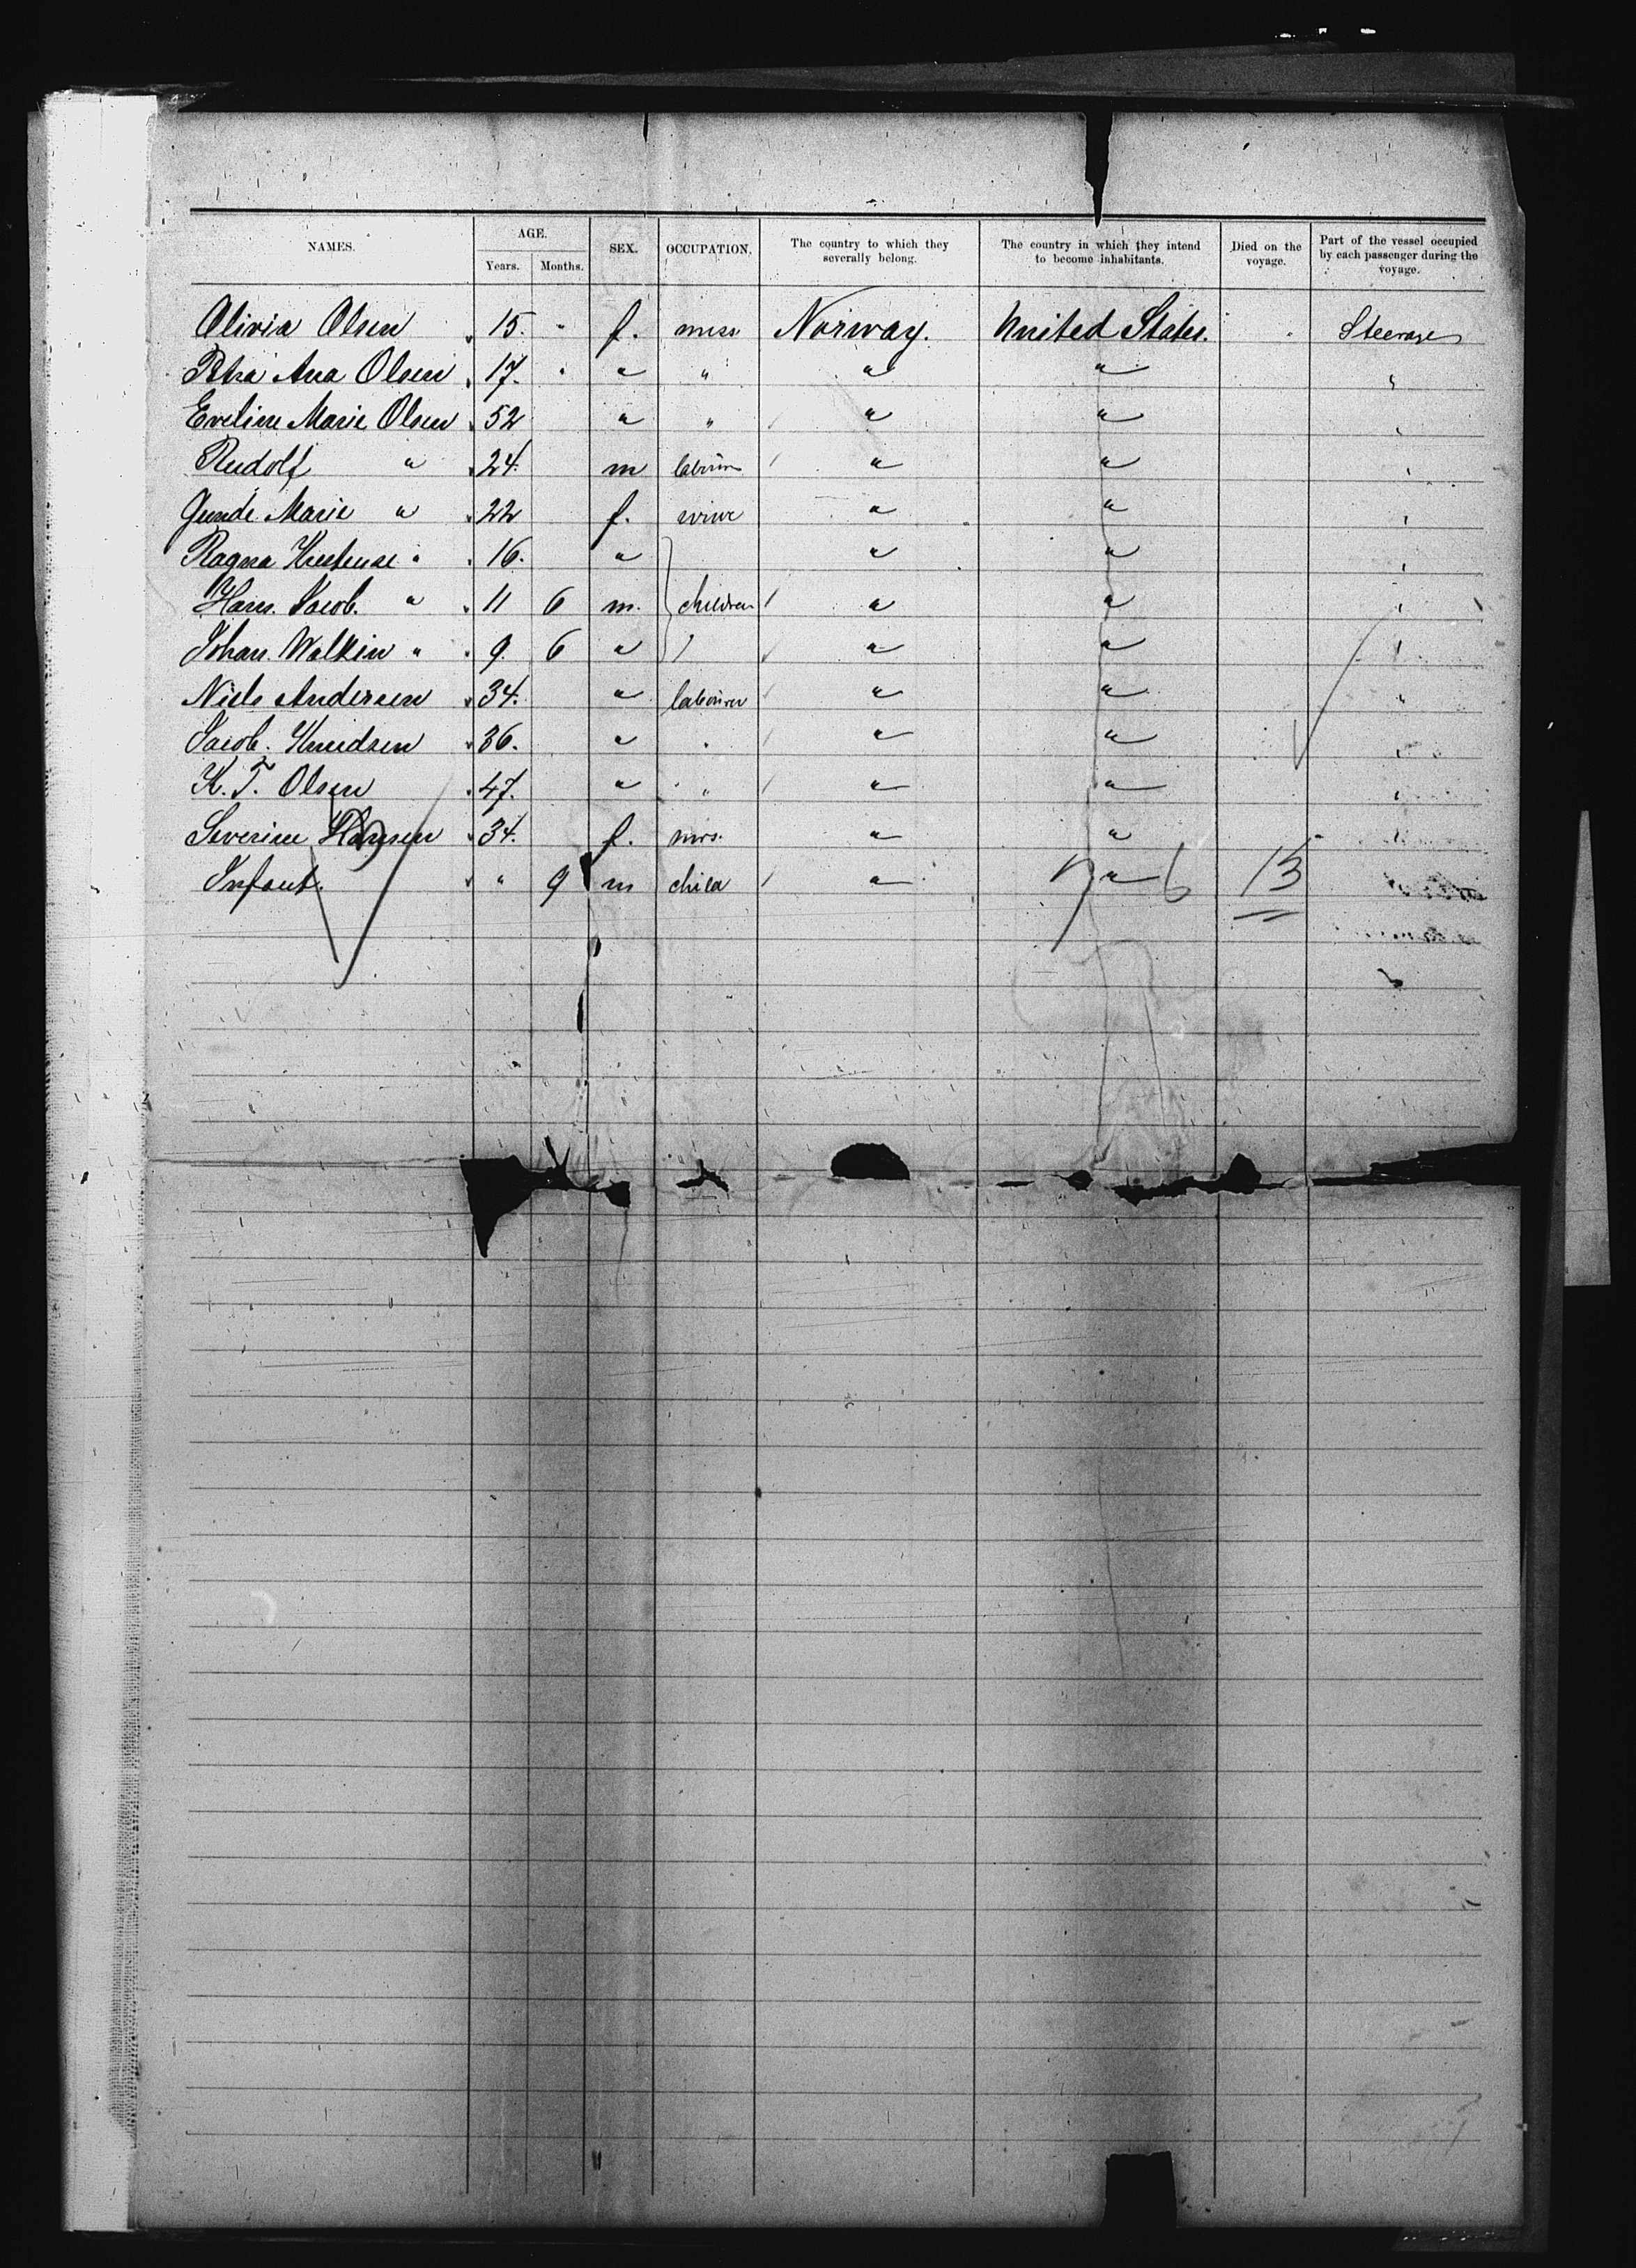 NAMES. AGE. SEX. OCCUPATION. The country to which they severally belong. The country in which they intend to become inhabitants. Died on the voyage. Part of the vessel occupied by each passenger during the voyage.
Years. Months.
Olivia Olsen " 15. " f. miss Norway. United States. " Steerage
Petra Ana Olsen " 17. " " " " " "
Eveline Marie Olsen " 52 " " " " "
Rudolf " " 24. m labourer " " "
Gunde Marie " " 22 f. " " "
Ragna " " 16. " " " "
Hans Jacob " " 11 6 m. children " " "
Johan Walkin " " 9. 6 " " " "
Niels Andersen " 34. " labourer " " "
Jacob Knudsen " 36. " " " " "
K. T. Olsen " 47. " " " " "
Severine Hansen " 34. f. mrs. " " "
Infant. " " 9 m child " " 13